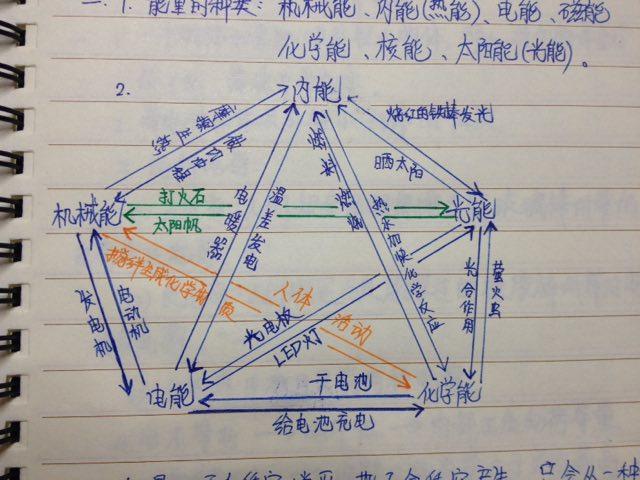 二、1. 能量的种类：机械能、内能(热能)、电能、磁能
化学能、核能、太阳能(光能)。
2.
内能
摩擦生热
烧红的铁棒发光
晒太阳
燃料
燃烧
机械能
打火石
太阳帆
光能
电暖器
温差发电
发电机
电动机
人体
活动
光电板
LED灯
光合作用
萤火虫
电能
干电池
化学能
给电池充电